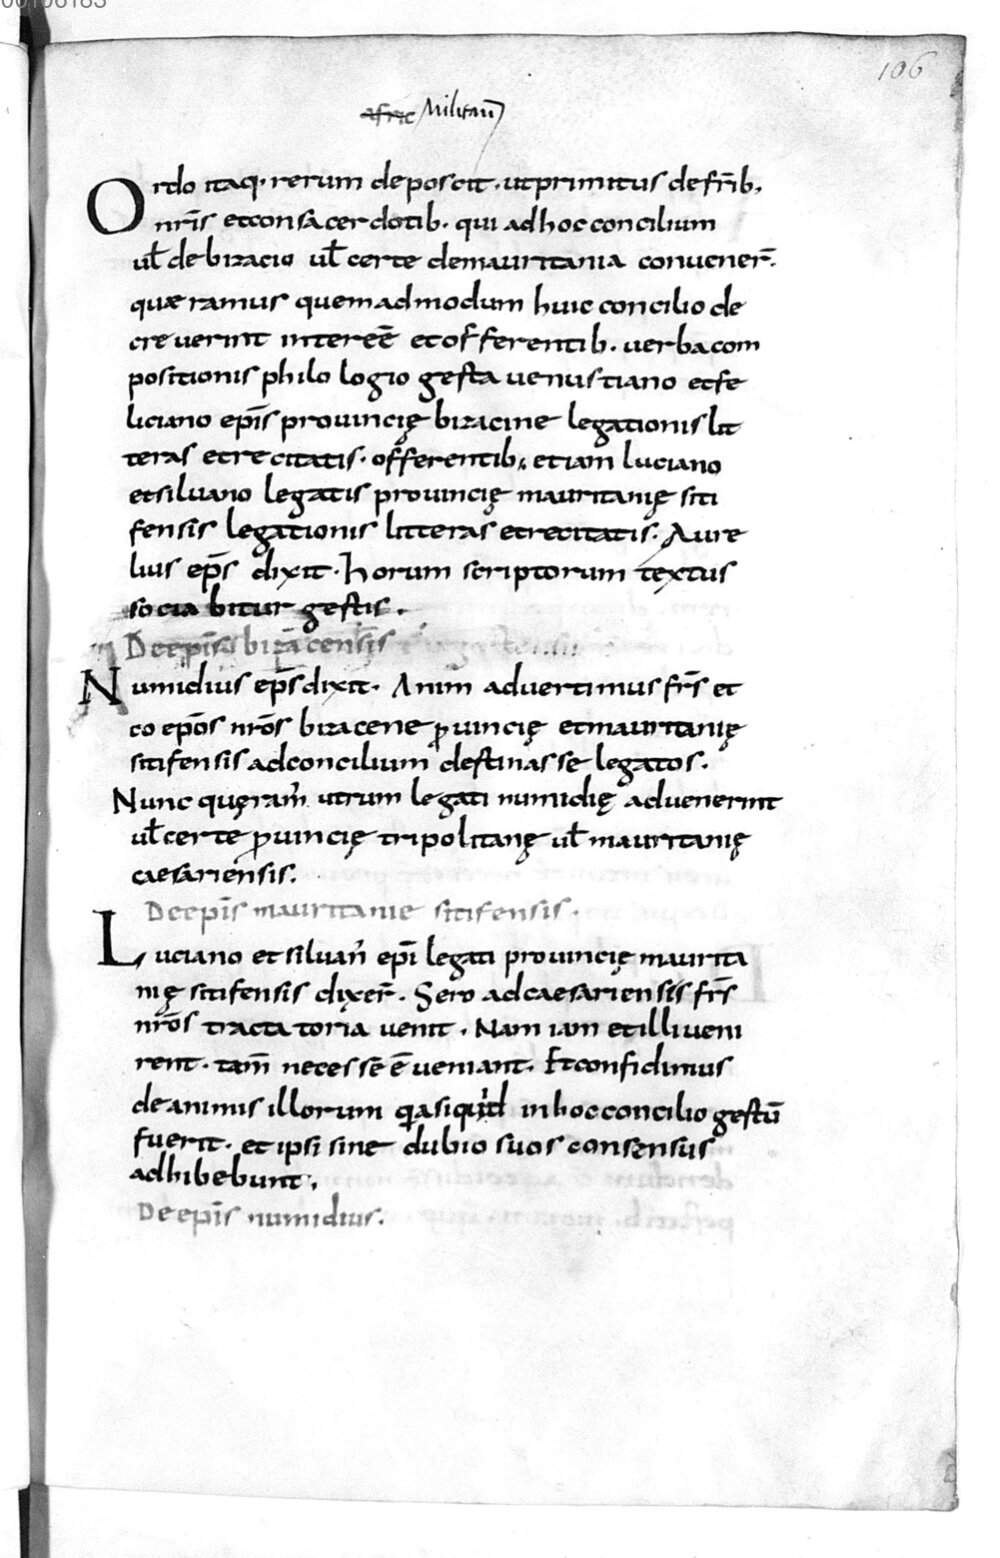 00106183
106
afric Militan̄
Ordo itaq· rerum deposcit· ut primitus de fr̄ib,
nr̄is et consacerdotib· qui ad hoc concilium
ul̄ de bizacio ul̄ certe de mauritania convener̄.
quæramus quemadmodum huic concilio de
creverint interee̅ et offerentib· verba com
positionis philologio gesta venustiano et fe
liciano ep̄is provincię bizacine legationis lit
teras et recitatis· offerentib; etiam luciano
et silvano legatis provincię mauritanię siti
fensis legationis litteras et recitatis· Aure
lius ep̄s dixit· horum scriptorum textus
sociabitur gestis.
De ep̄is bizacensis
Numidius ep̄s dixit· Anim advertimus fr̄s et
co ep̄os nr̄os bizacene ꝓvincię et mauritanię
sitifensis ad concilium destinasse legatos.
Nunc quęram̄ utrum legati numidię advenerint
ul̄ certe ꝓvincię tripolitanę ul̄ mauritanię
caesariensis.
De ep̄is mauritanie sitifensis.
Luciano et silvan̄ ep̄i legati provincię maurita
nię sitifensis dixer̄· Sero ad caesariensis fr̄s
nr̄os tractatoria venit· Nam iam et illi veni
rent· tam̄ necesse ē veniant· Et confidimus
de animis illorum quia siquid in hoc concilio gestū
fuerit· et ipsi sine dubio suos consensus
adhibebunt.
De ep̄is numidius.